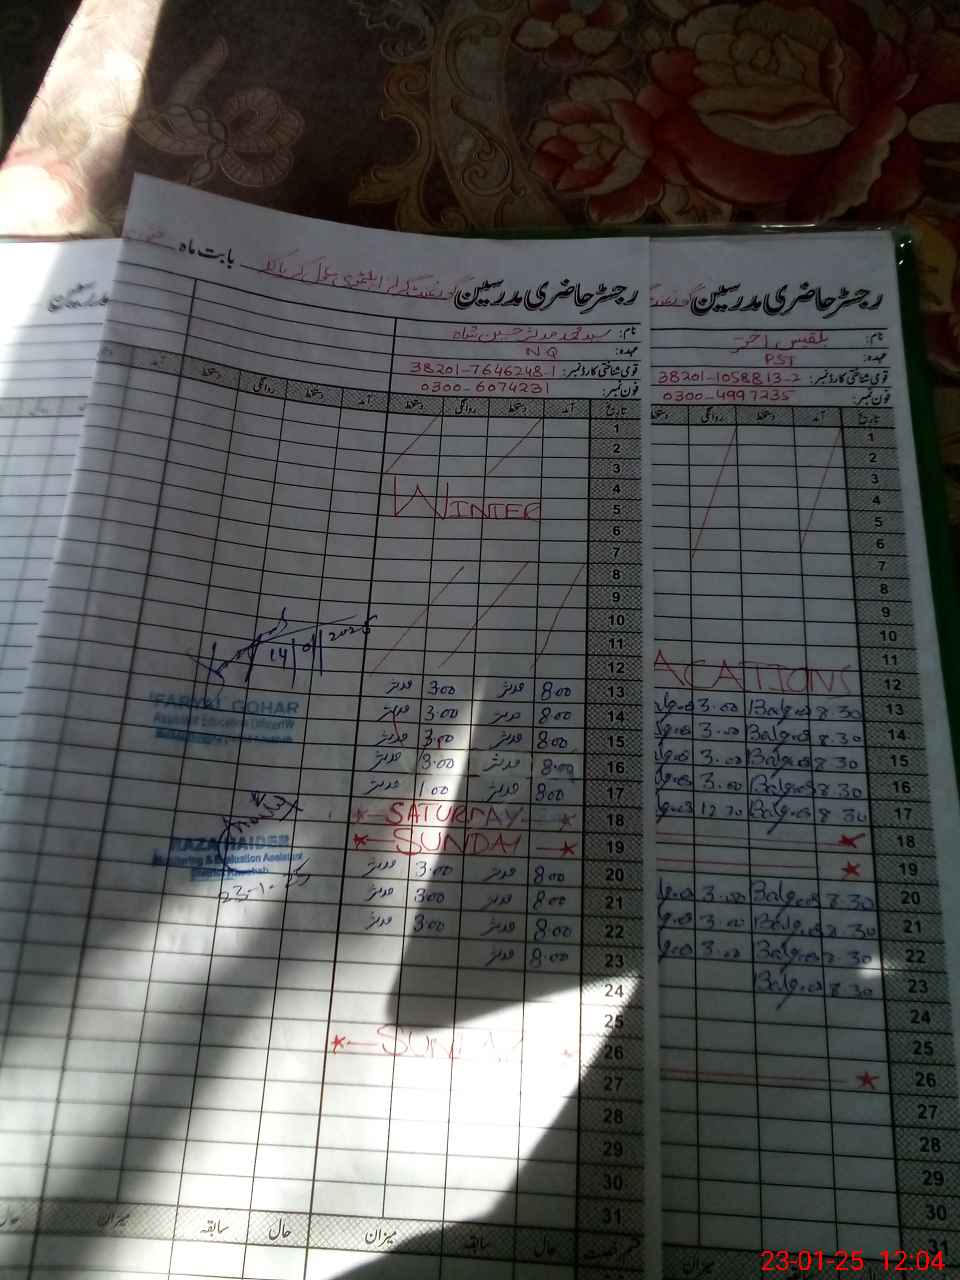 رجسٹر حاضری مدرسین
گورنمنٹ گرلز ایلیمنٹری سکول
بابت ماہ
نام: سید محمد مدثر حسین شاہ
عہدہ: NQ
قومی شناختی کارڈ نمبر: 38201-7646248-1
فون نمبر: 0300-6074231
تاریخ آمد دستخط روانگی دستخط آمد دستخط روانگی دستخط آمد
1
2
3
4
WINTER
5
6
7
8
9
10
11
12
13 8.00 مدثر 3.00 مدثر
14 8.00 مدثر 3.00 مدثر
15 8.00 مدثر 3.00 مدثر
16 8.00 مدثر 3.00 مدثر
17 8.00 مدثر 1.00 مدثر
18 SATURDAY
19 SUNDAY
20 8.00 مدثر 3.00 مدثر
21 8.00 مدثر 3.00 مدثر
22 8.00 مدثر 3.00 مدثر
23 8.00 مدثر
24
25
26 SUNDAY
27
28
29
30
31
حال سابقہ میزان حال سابقہ میزان حال
14/01/2025
FARYAL GOHAR
Assistant Education Officer(W
RAZA HAIDER
Monitoring & Evaluation Assistant
District Khushab
23-1-25
رجسٹر حاضری مدرسین
نام: بلقیس اختر
عہدہ: PST
قومی شناختی کارڈ نمبر: 38201-1058813-2
فون نمبر: 0300-4997235
تاریخ آمد دستخط روانگی دستخط
1
2
3
4
5
6
7
8
9
10
11
ACATIONS
12
13 8.30 3.00
14 8.30 3.00
15 8.30 3.00
16 8.30 3.00
17 8.30 12.30
18
19
20 8.30 3.00
21 8.30 3.00
22 8.30 3.00
23 8.30
24
25
26
27
28
29
30
31
میزان
مدرسین
23-01-25 12:04